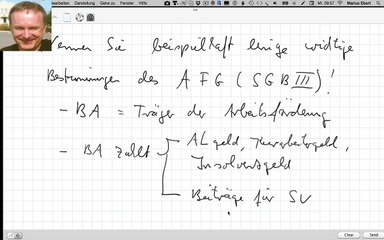 bearbeiten Darstellung Gehe zu Hilfe
Mi. 00:57 Marius Ebert
Nennen Sie beispielhaft einige wichtige
Bestimmungen des AFG (SGB III)!
- BA = Träger der Arbeitsförderung
- BA zahlt ALgeld, Kurzarbeitergeld,
Insolvenzgeld
Beiträge für SV
Clear Send